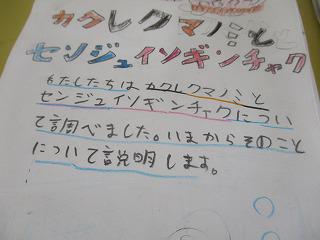 カクレクマノミと
センジュイソギンチャク
わたしたちはカクレクマノミと
センジュイソギンチャクについ
て調べました。いまからそのこと
について説明します。